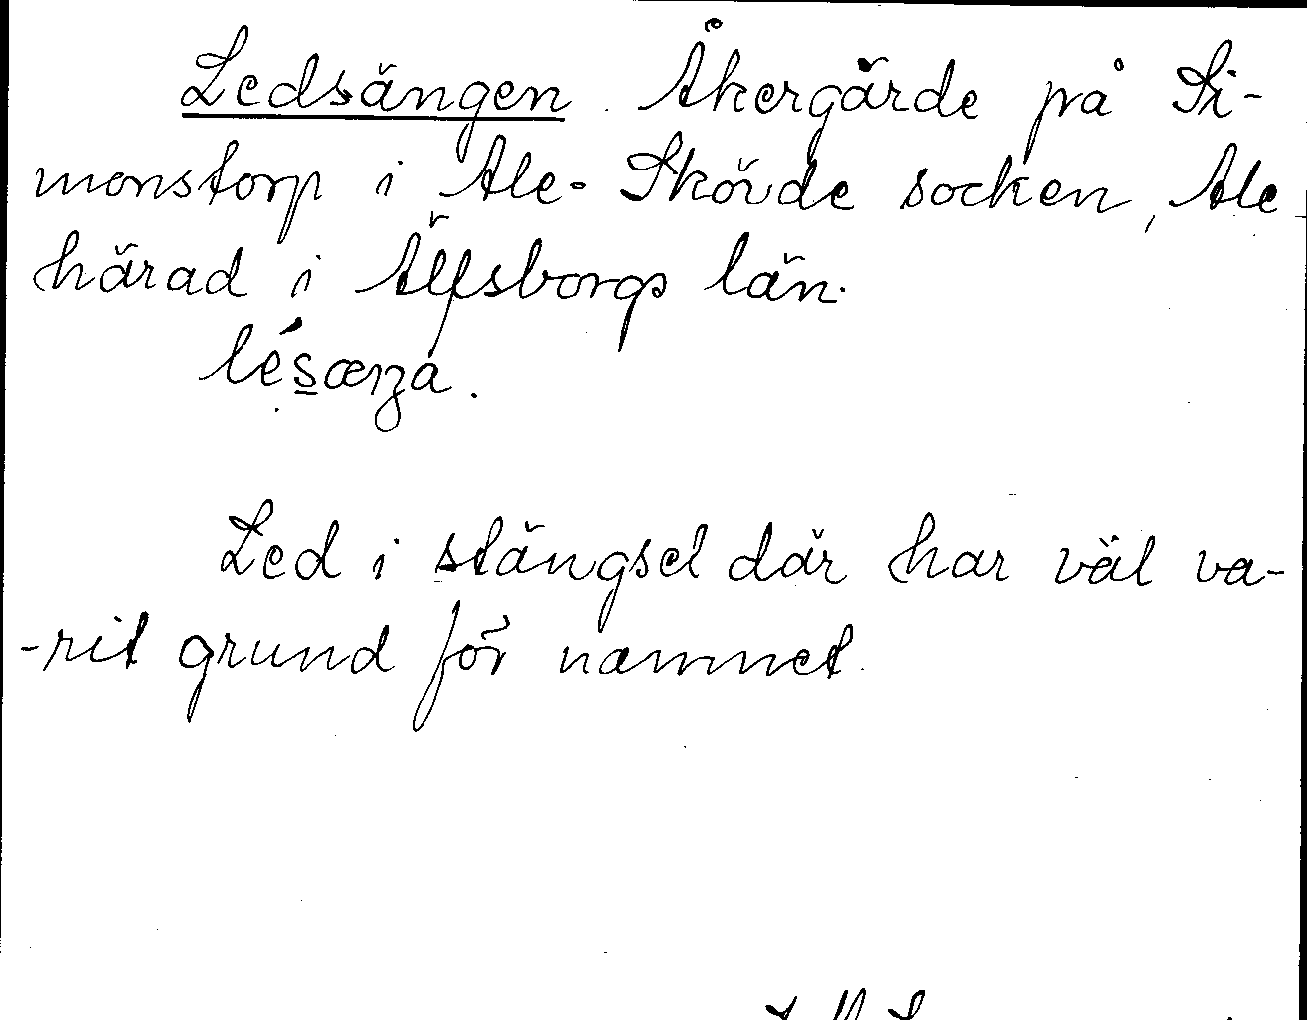 Ledsängen. Åkergärde på Si-
monstorp i Ale-Skövde socken, Ale
härad i Älfsborgs län.
lésæŋa.
Led i stängsel där har väl va-
-rit grund för namnet.